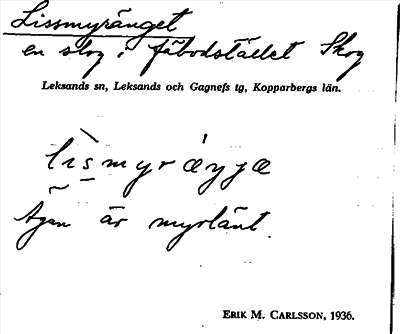 Lissmyränget
en slog i fäbodstället Skog
Leksands sn, Leksands och Gagnefs tg, Kopparbergs län.
lismyræŋjæ
Ägan är myrlänt.
ERIK M. CARLSSON, 1936.